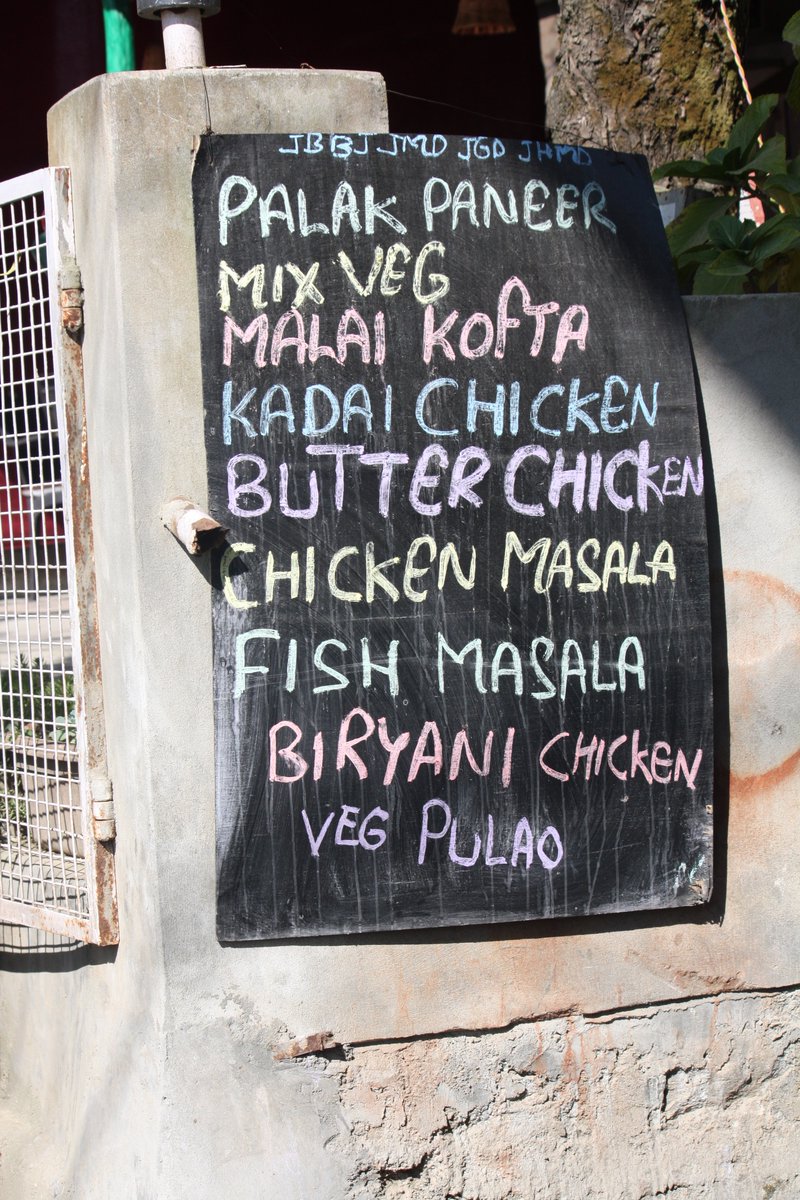 JBBJ JMD JGD JHMD
PALAK PANEER
MIX VEG
MALAI KOFTA
KADAI CHICKEN
BUTTER CHICKEN
CHICKEN MASALA
FISH MASALA
BIRYANI CHICKEN
VEG PULAO